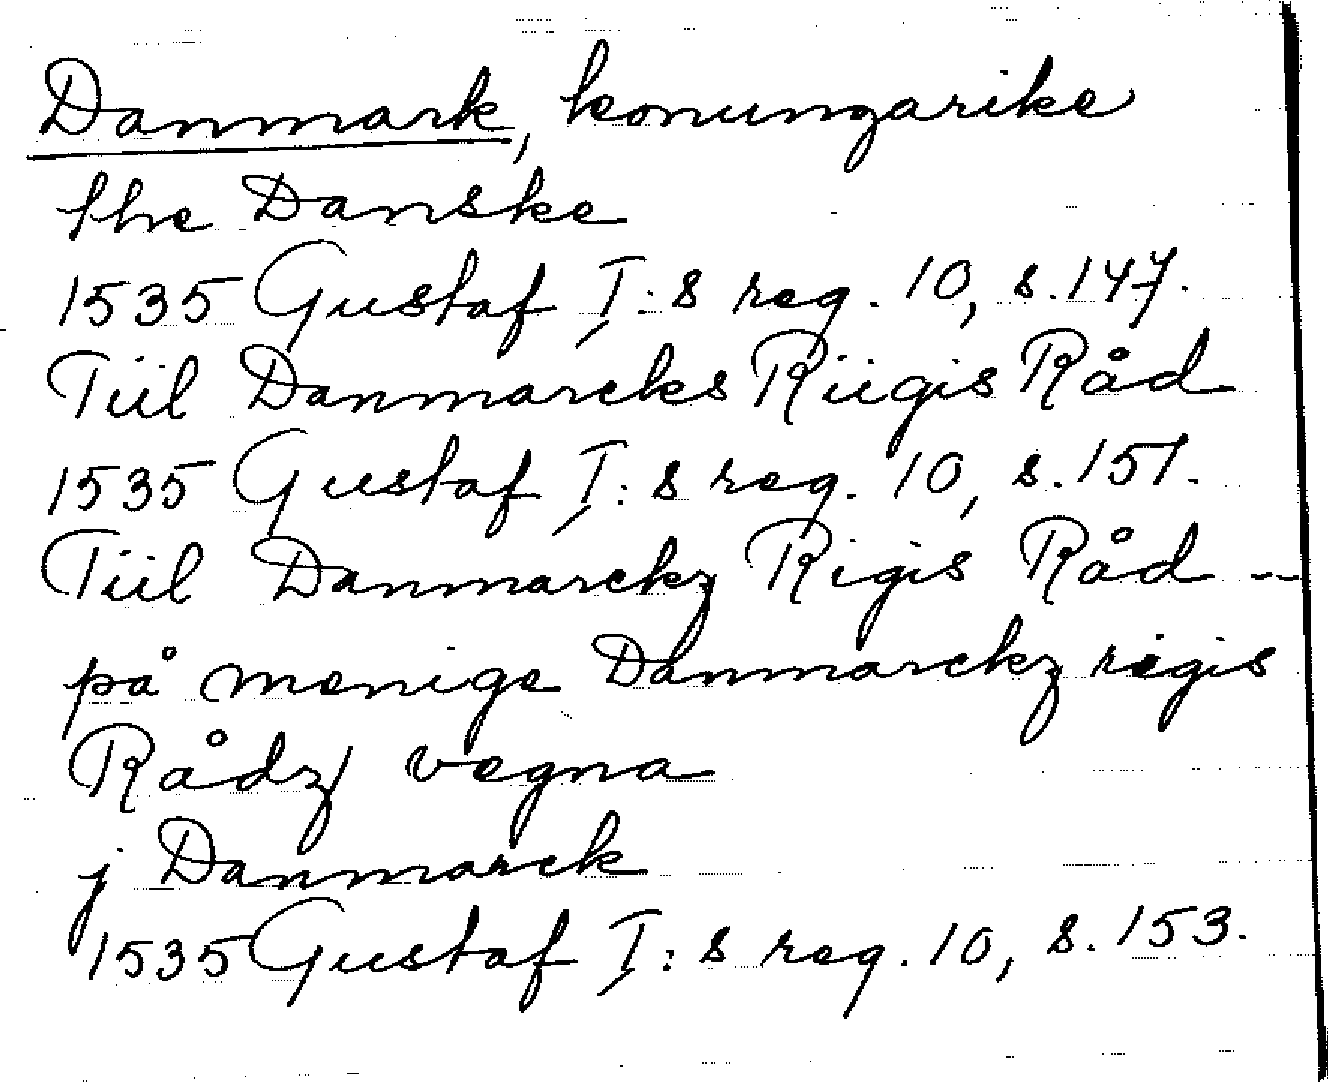 Danmark, konungarike
the Danske
1535 Gustaf I:s reg. 10, s. 147.
Tiil Danmarcks Riigis Råd
1535 Gustaf I:s reg. 10, s. 151.
Tiil Danmarckz Rigis Råd --
på menige Danmarckz rigis
Rådz vegna
j Danmarck
1535 Gustaf I:s reg. 10, s. 153.